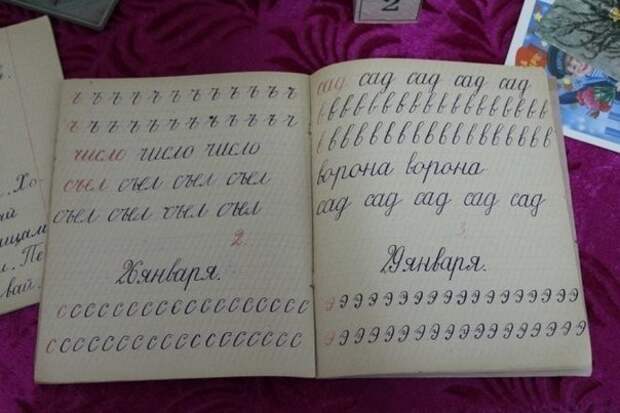 2
. Хо-
ый
ицам
. Пе
вай.
ъ ъ ъ ъ ъ ъ ъ ъ ъ ъ ъ ъ
ъ ъ ъ ъ ъ ъ ъ ъ ъ ъ ъ ъ
число число число
съел съел съел съел
съел съел съел съел
2.
26 января.
с с с с с с с с с с с с с с с с с с
с с с с с с с с с с с с с с с с с с
сад сад сад сад сад
в в в в в в в в в в в в в в в в в в
в в в в в в в в в в в в в в в в в в
ворона ворона
сад сад сад сад сад
3.
29 января.
э э э э э э э э э э э э э э э э э э
э э э э э э э э э э э э э э э э э э